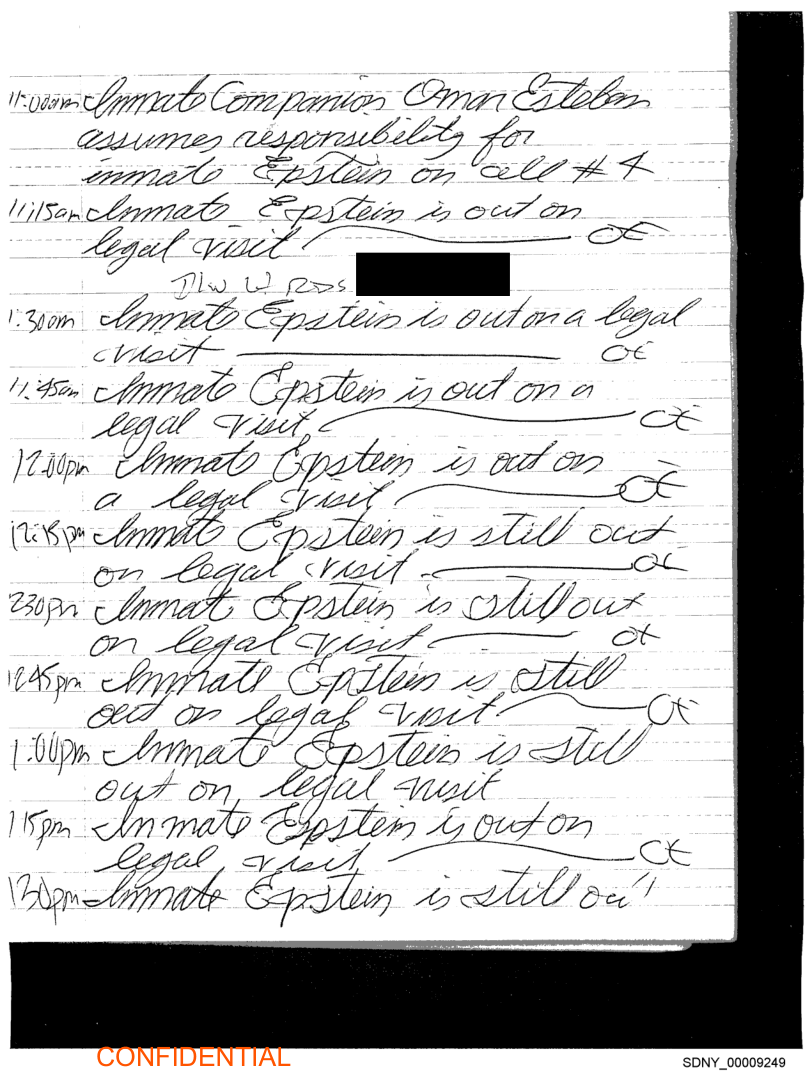 11:00am Inmate Companion Omar Esteban
assumes responsibility for
inmate Epstein on cell # 4
11:15am Inmate Epstein is out on
legal visit OE
1:30am Inmate Epstein is out on a legal
visit OE
11:45am Inmate Epstein is out on a
legal visit OE
12:00pm Inmate Epstein is out on
a legal visit OE
12:15pm Inmate Epstein is still out
on legal visit OE
230pm Inmat Epstein is still out
on legal visit OE
1245pm Inmate Epstein is still
out on legal visit OE
1:00pm Inmate Epstein is still
out on legal visit
115pm Inmate Epstein is out on
legal visit OE
130pm Inmate Epstein is still ou
CONFIDENTIAL
SDNY_00009249